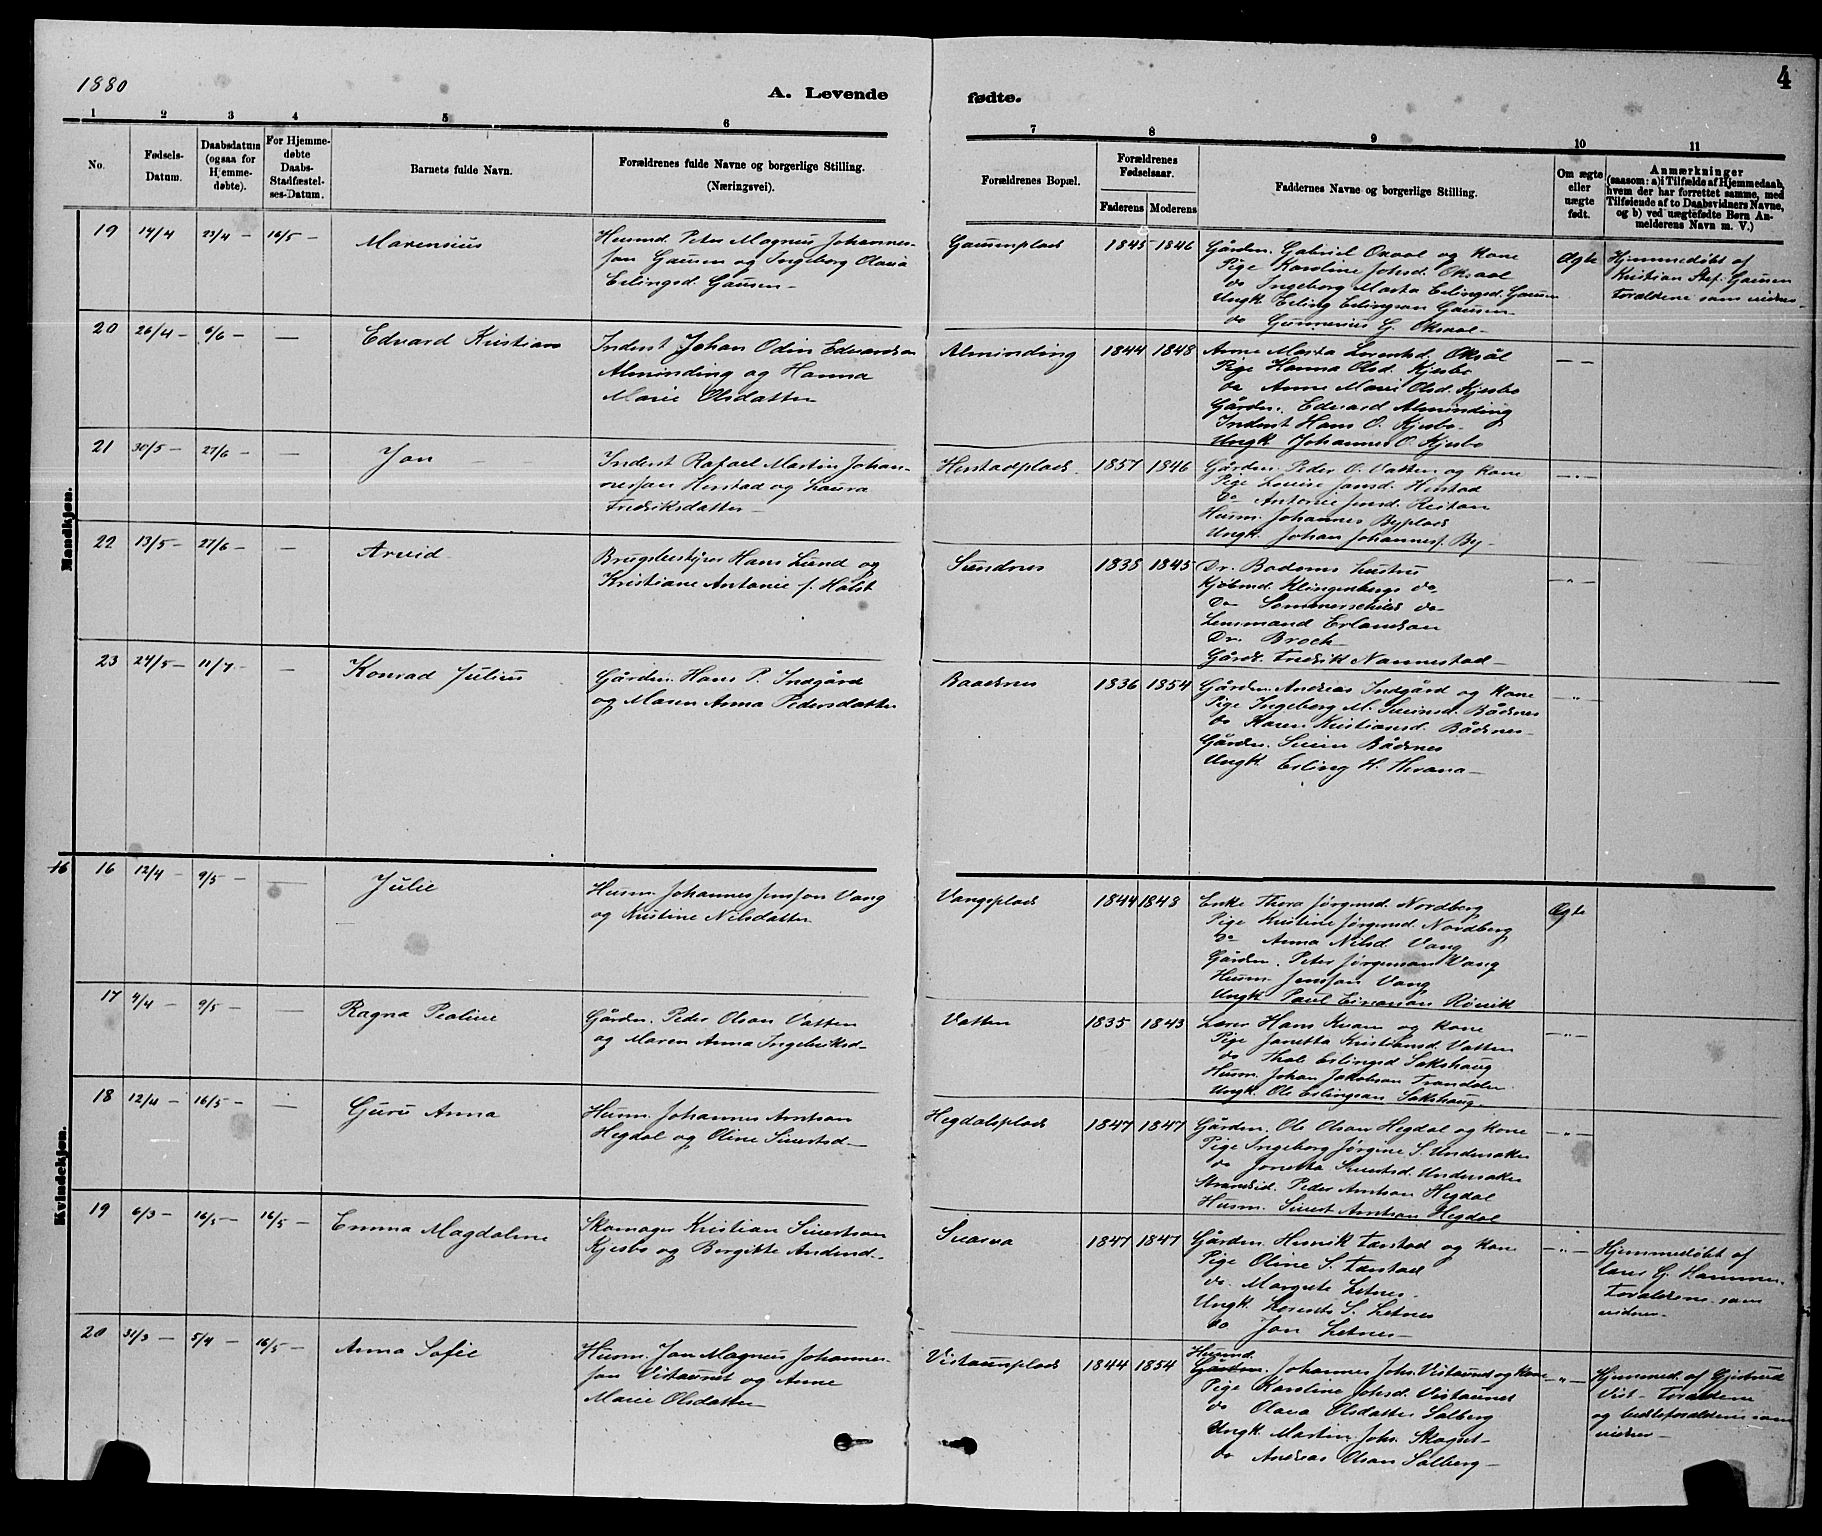 1880
A. Levende
fødte.
4
1 2 3 4 5 6 7 8 9 10 11
No.
Fødsels-Datum.
Daabsdatum (ogsaa for Hjemmedøbte).
For Hjemmedøbte Daabs-Stadfæstelses-Datum.
Barnets fulde Navn.
Forældrenes fulde Navne og borgerlige Stilling.
(Næringsvei).
Forældrenes Bopæl.
Forældrenes Fødselsaar.
Faderens Moderens
Faddernes Navne og borgerlige Stilling.
Om ægte eller uægte født.
Anmærkninger
(saasom: a) i Tilfælde af Hjemmedaab, hvem der har forrettet samme, med Tilføiende af to Daabsvidners Navne, og b) ved uægtefødte Børn Anmelderens Navn m. V.)
Mandkjøn.
19 14/4 23/4 - 16/5 - Marensius
Husmd. Peter Magnus Johannes-
son Gausen og Ingeborg Olava
Erlingsd. Gausen -
Gausenplads 1845 1846
Gården. Gabriel Oxaal og Kone
Pige Karoline Johsd. Oksaal
do Ingeborg Marta Erlingsd. Gausen
Ungk. Erling Erlingsen Gausen
do Gunnerius G. Oksaal -
Ægte
Hjemmedøbt af
Kristian Stef. Gausen
Forældrene som vidner
20 26/4 - 6/6 - — Edvard Kristian
Inderst Johan Odin Edvardsen
Alminding og Hanna
Marie Olsdatter
Alminding 1844 1848
Anne Marta Lorentsd. Oksål
Pige Hanna Olsd. Kjesbo
do Anne Marie Olsd. Kjesbo
Gårdm. Edvard Alminding
Inderst Hans O. Kjesbo -
Ungk. Johannes O. Kjesbo
— " —
21 30/5 - 27/6 - — Jon
Inderst Rafael Martin Johan-
nesson Henstad og Laura
Fredriksdatter -
Henstadplads 1857 1846
Gården. Peder O. Vatten og Kone
Pige Louise Jonsd. Henstad
Do Antonie Jensd. Reitan
Husm. Johannes Byplads
Ungk. Johan Johanness. By -
— " —
22 13/5 - 27/6 - — Arvid
Brugsbestyrer Hans Lund og
Kristiane Antonie f. Holst
Sundnes 1838 1845
Dr. Bodoms Hustru
Kjøbmd. Klingenbergs do
Do Sommerschield do
Lensmand Erlandsen
Dr. Broch
Gårdb. Fredrik Nannestad -
— " —
23 24/5 - 11/7 - — Konrad Julius
Gården. Hans P. Indgård
og Maren Anna Pedersdatter
Baadsnes 1836 1854
Gården. Andreas Indgård og Kone
Pige Ingeborg M. Sveinsd. Bådsnes
do Karen Kristiansd. Bådsnes -
Gården. Svein Bådsnes
Ungk. Erling H. Thrana -
— " —
Kvindekjøn.
16 16 12/4 - 9/5 - — Julie
Husm. Johannes Jensson Vang
og Kristine Nilsdatter
Vangsplads 1844 1843
Enke Thora Jørgensd. Nordberg
Pige Kristine Jørgensd. Nordberg
do Anna Nilsd. Vang
Gården. Peter Jørgensen Vang
Husm. Jensson Vang
Ungk. Paul Einarsen Røvik
Ægte
17 4/4 - 9/5 - — Ragna Peoline
Gården. Peder Olsen Vatten
og Maren Anna Ingebriktsd -
Vatten 1835 1843
Lærer Hans Kvam og Kone
Pige Janetta Kristiansd. Vatten
do Thale Erlingsd Sakshaug
Husm. Johan Jakobsen Trondalen
Ungk. Ole Erlingsen Sakshaug -
— " —
18 12/4 - 16/5 - — Guru Anna
Husm. Johannes Arntsen
Hegdal og Oline Sivertsd -
Hegdalsplads 1847 1847
Gården. Ole Olsen Hegdal og Kone
Pige Ingeborg Jørgine S. Undersaker
do Jonetta Sivertsd. Undersaker
Strandsid. Peder Arntsen Hegdal
Husm. Sivert Arntsen Hegdal
— " —
19 6/3 - 16/5 - 16/5 - Emma Magdalene
Skomager Kristian Sivertsen
Kjesbo og Bergitte Andersd. -
Svarva 1847 1847
Gården. Henrik Førstad og Kone
Pige Oline S. Førstad
do. Margrete Letnes.
Ungk. Lorents S. Letnes
do Jon Letnes -
— " —
Hjemmedøbt af
Lærer G. Hammer.
Forældrene som
vidner -
20 31/3 - 5/4 - 16/5 - Anna Sofie
Husm. Jon Magnus Johannes-
son Vistaunet og Anne
Marie Olsdatter
Vistaunplads 1844 1854
Husmd.
Gården. Johannes Johs. Vistaunet og Kone
Pige Karoline Johsd. Vistaunet
do Olava Olsdatter Salberg
Ungk. Martin Johs. Skoget -
do Andreas Olsen Salberg -
— " —
Hjemmed. af Gjertrud
Vist - Forældrene
og bedsteforældrene som
vidner -